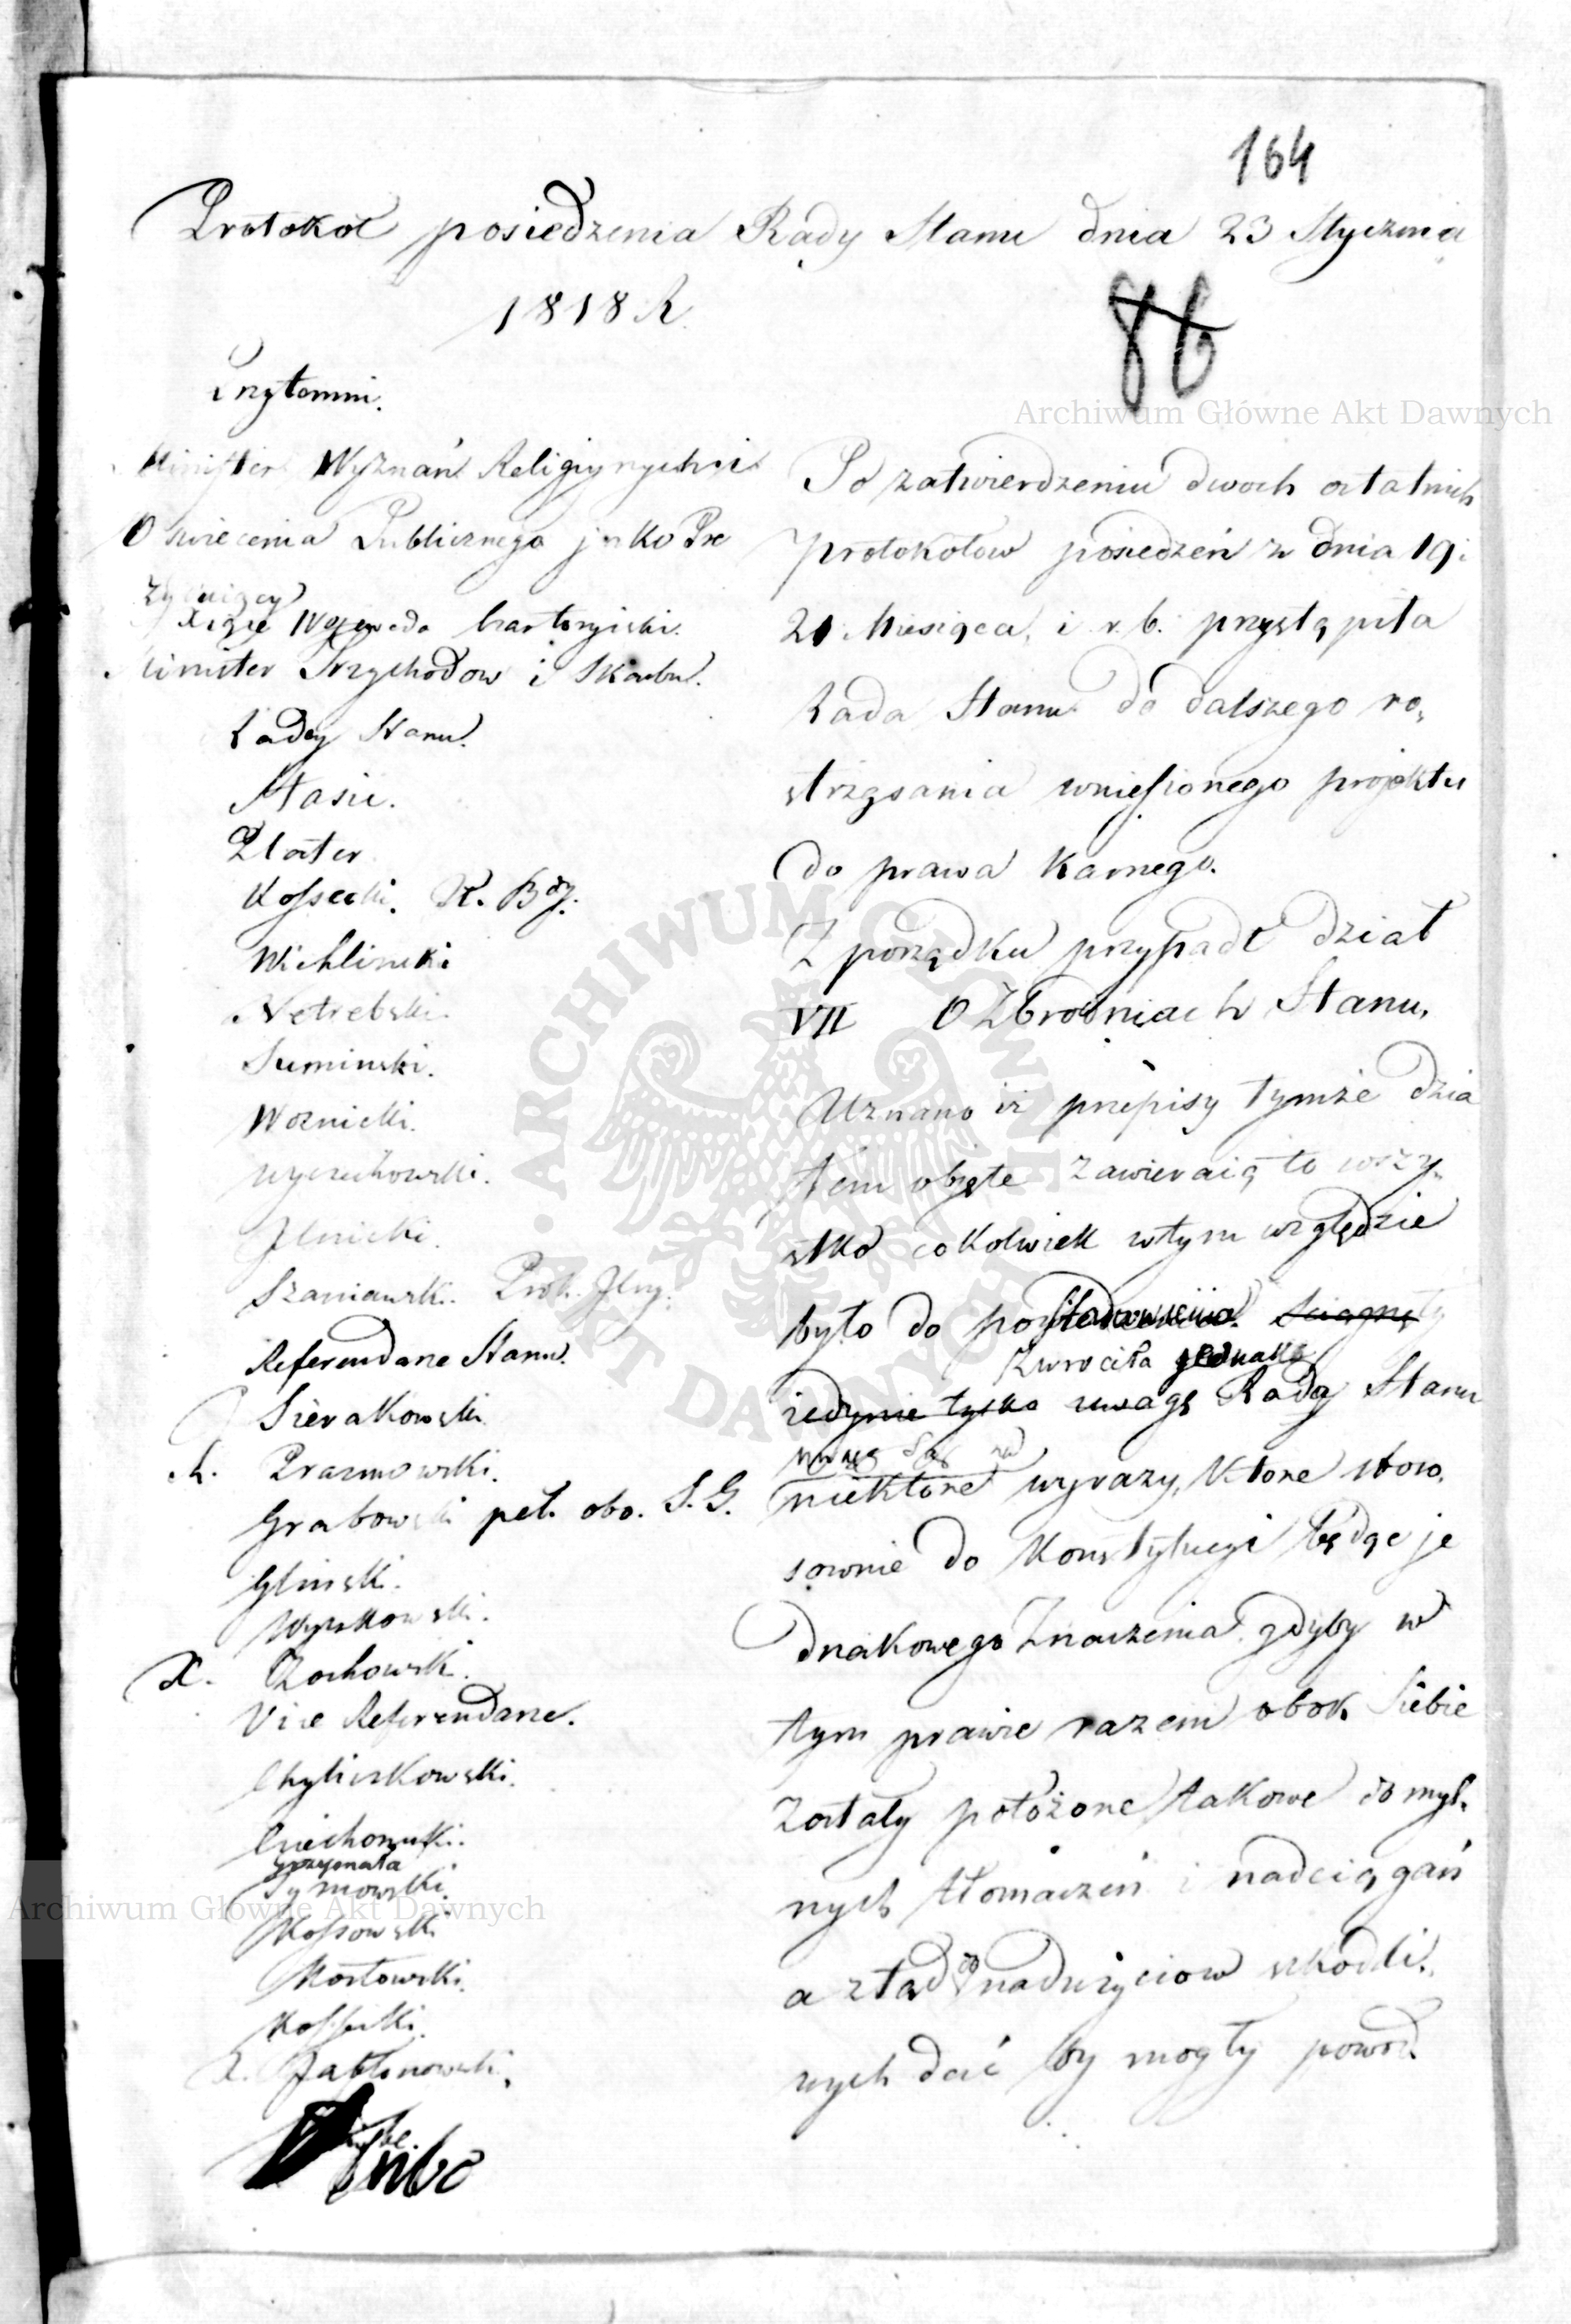 164
Protokół posiedzenia Rady Stanu dnia 23 Stycznia
1818 R.
86
Przytomni.
Minister Wyznań Religiynych i
Oswiecenia Publicznego jako Pre
zyduiący
Xiąże Wojewoda Czartoryiski.
Minister Przychodow i Skarbu.
Radcy Stanu.
Stasic.
Plater
Kossecki.
Wichlinski
Netrebski.
Suminski.
Woznicki.
Wyczechowski.
Jlnicki.
Szaniawski. Prok. Jlny.
Referendarze Stanu.
Sierakowski.
X. Prazmowski.
Grabowski peł. obo. S. G.
Glinski.
Wyszkowski.
X. Czochowski.
Vice Referendarze.
Chyliczkowski.
Ciechomski.
Tymowski.
Kossowski
Kosłowski.
Kossecki.
X. Jabłonowski.
Po zatwierdzeniu dwoch ostatnich
protokołow posiedzeń z dnia 19 i
21 Miesiąca, i r. b. przystąpiła
Rada Stanu do dalszego ro„
strząsania wniesionego projektu
do prawa karnego.
Z porządku przypadł dział
VII O Zbrodniach Stanu.
Uznano iż przepisy tymże dzia
łem obięte zawieraią to wszy„
stko cokolwiek w tym względzie
było do postanowienia. sciągnęły
zwrociła jednak
iedynie tylko uwagę Rada Stanu
swą na
niektóre wyrazy, ktore stoso„
sownie do Konstytucyi będąc je
dnakowego znaczenia gdyby w
tym prawie razem obok siebie
zostały położone takowe domyl„
nych tłomaczeń i nadciągań
a ztąd do nadużyciow szkodli„
wych dać by mogły powod
Archiwum Główne Akt Dawnych
Archiwum Główne Akt Dawnych
ARCHIWUM GŁÓWNE AKT DAWNYCH